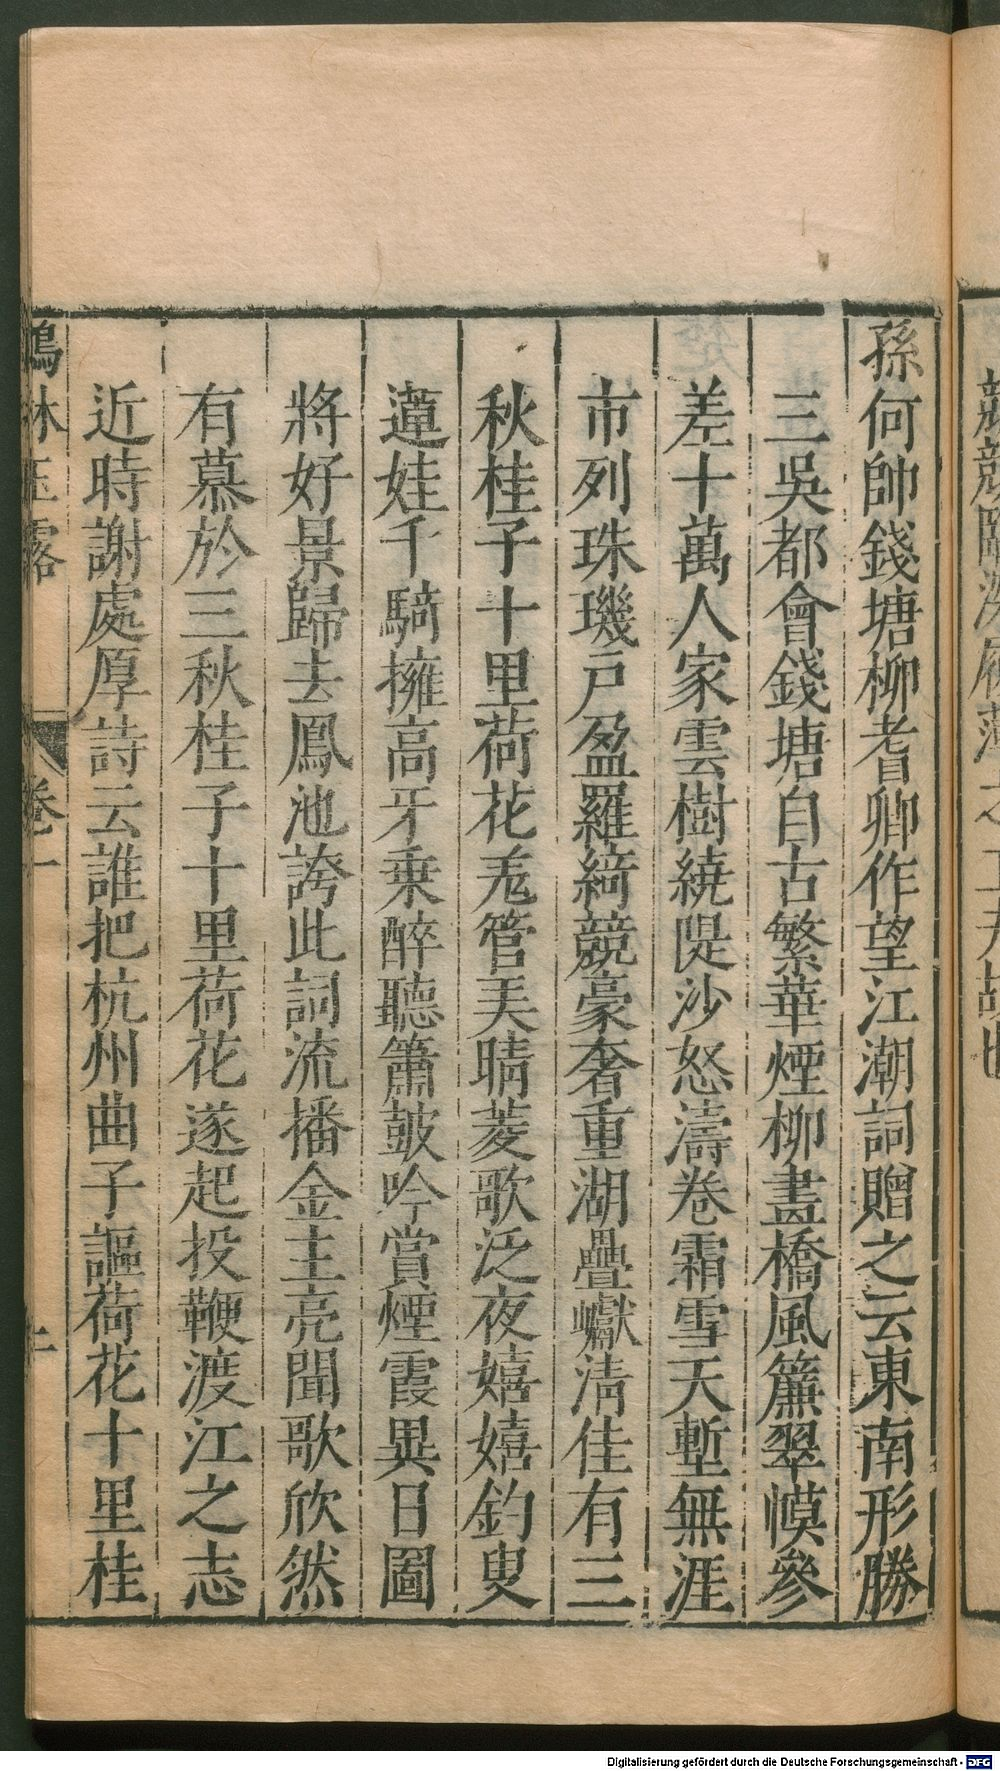 孫何帥錢塘柳耆卿作望江潮詞贈之云東南形勝
三吳都會錢塘自古繁華煙柳畫橋風簾翠幙參
差十萬人家雲樹繞隄沙怒濤卷霜雪天塹無涯
市列珠璣戶盈羅綺競豪奢重湖疊巘淸佳有三
秋桂子十里荷花羌管美晴菱歌泛夜嬉嬉釣叟
蓮娃千騎擁高牙乗醉聽簫皷吟賞煙霞異日圖
將好景歸去鳳池誇此詞流播金主亮聞歌欣然
有慕於三秋桂子十里荷花遂起投鞭渡江之志
近時謝處厚詩云誰把杭州曲子謳荷花十里桂
林玉露 卷一
Digitalisierung gefördert durch die Deutsche Forschungsgemeinschaft - DFG